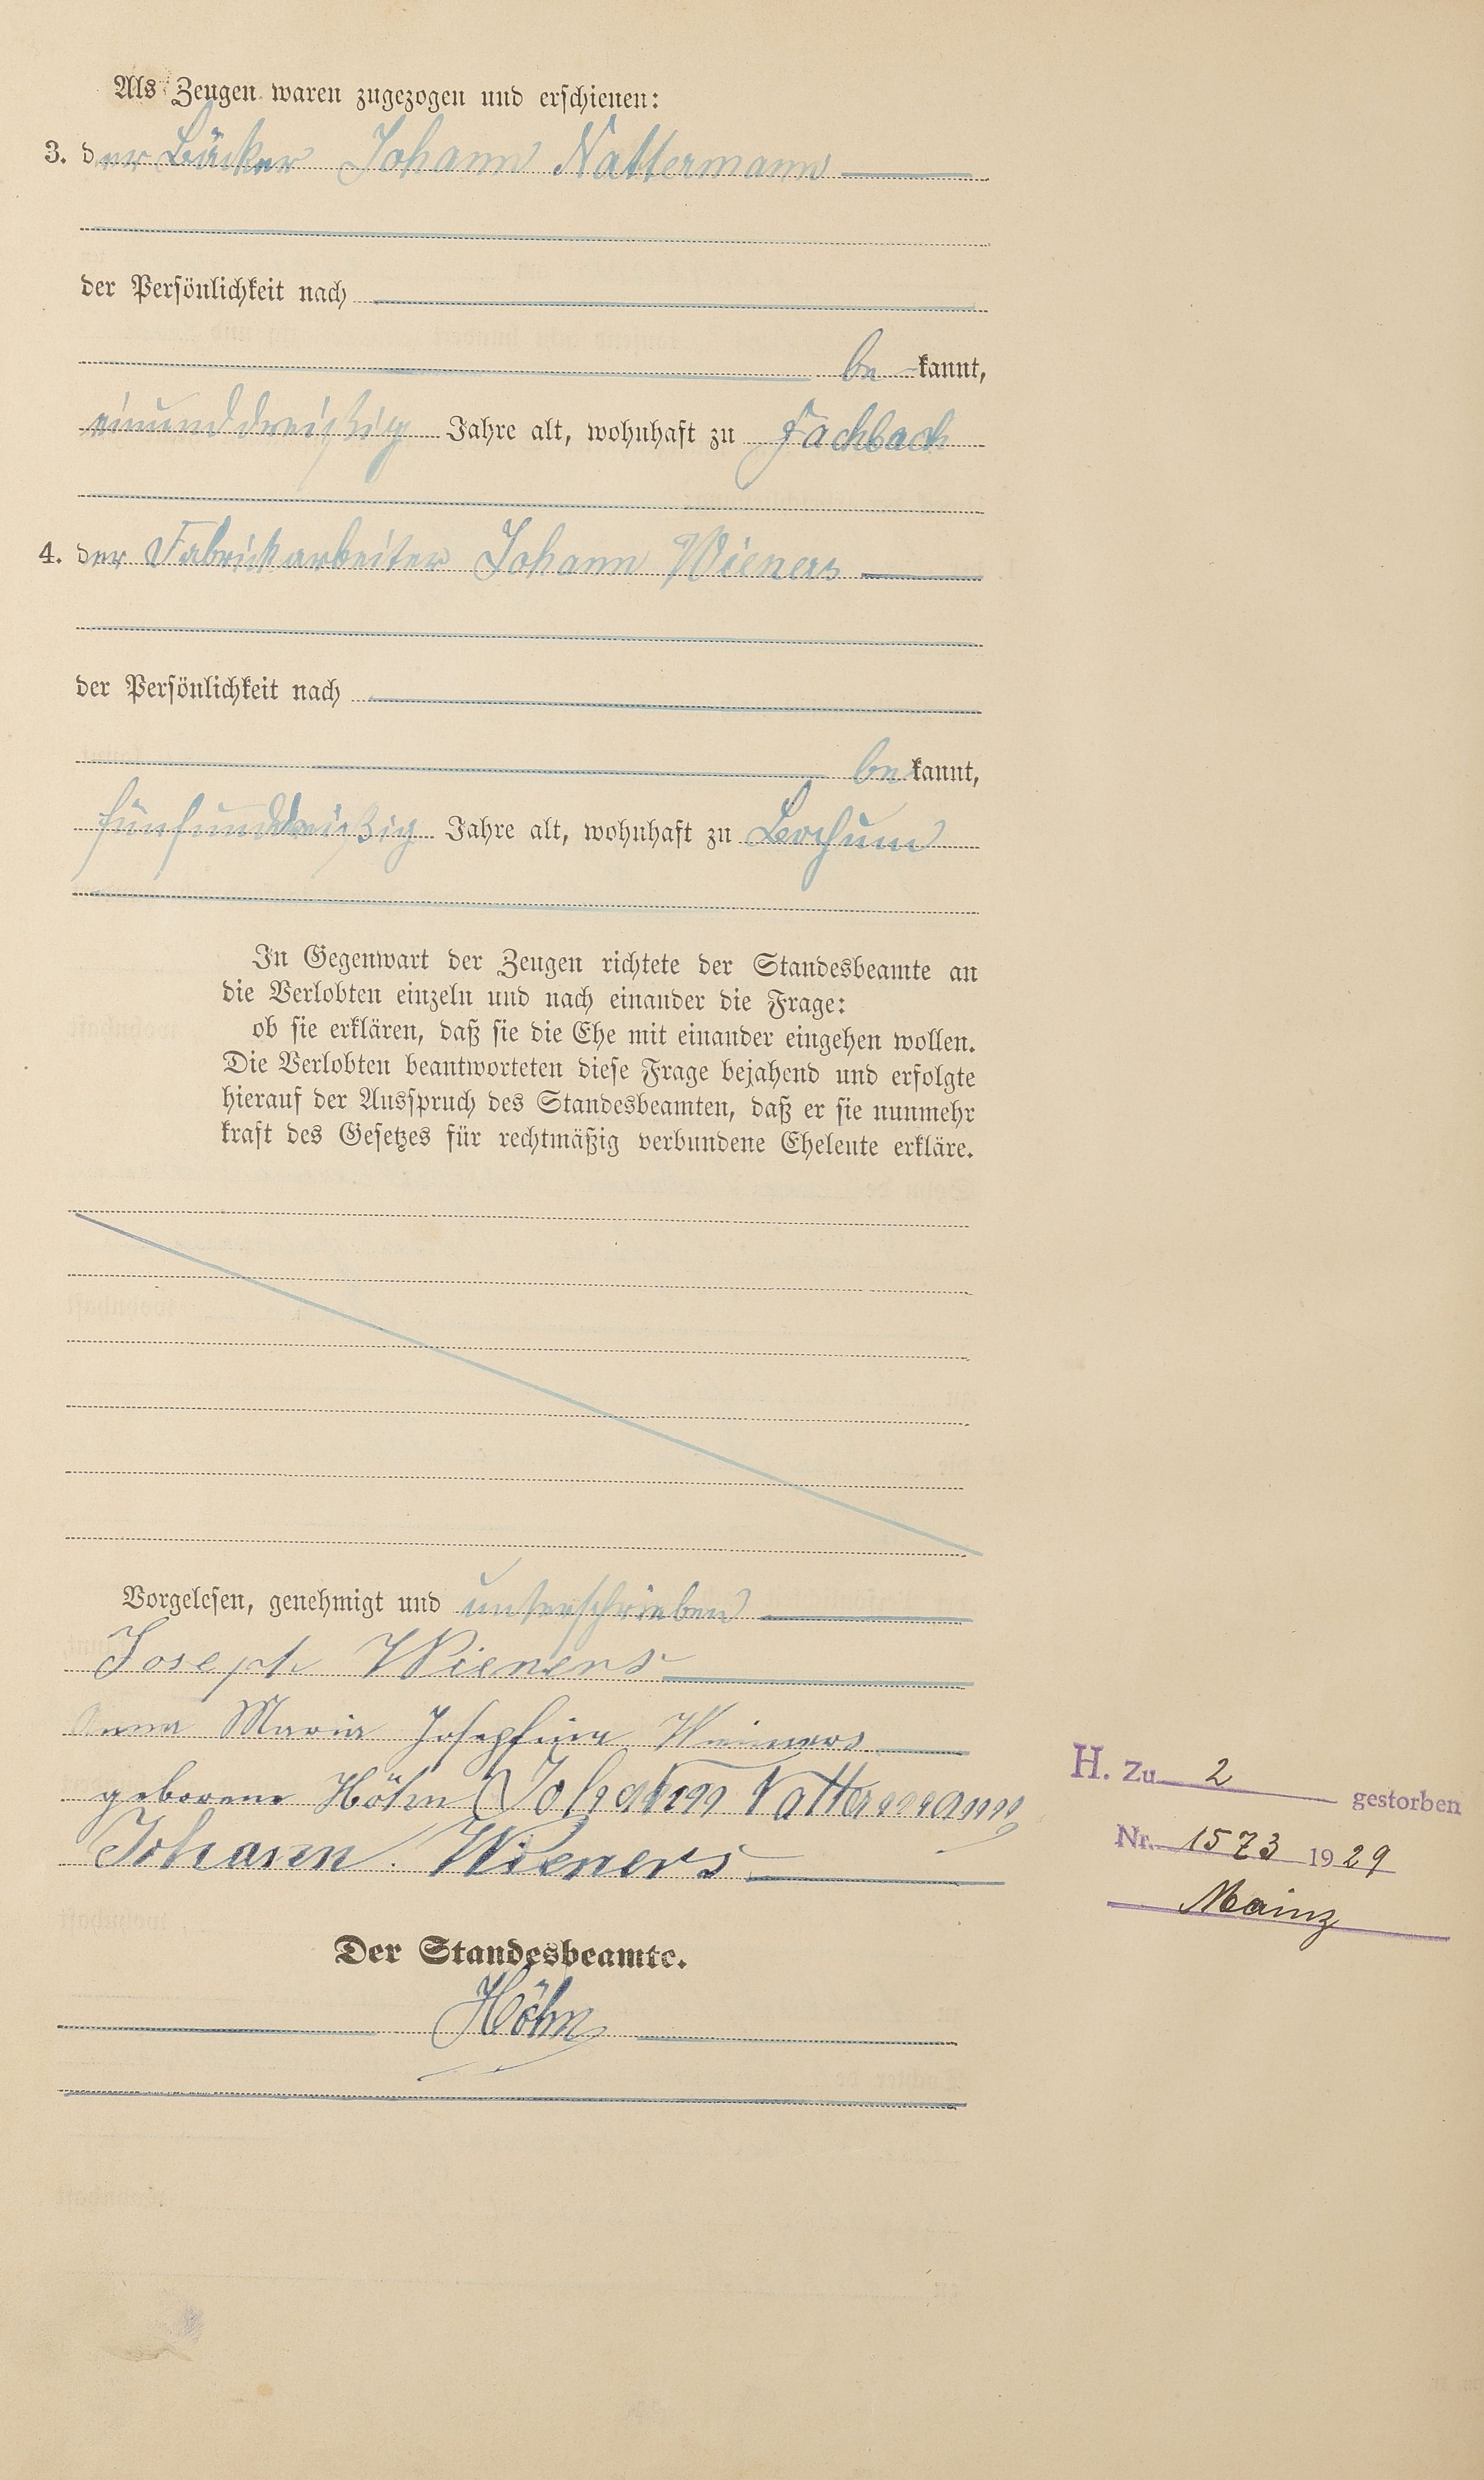 Als Zeugen waren zugezogen und erschienen:
3. der Bäcker Johann Nattermann
der Persönlichkeit nach
be kannt,
einunddreißig Jahre alt, wohnhaft zu Fachbach
4. der Fabrickarbeiter Johann Wieners
der Persönlichkeit nach
be kannt,
fünfunddreißig Jahre alt, wohnhaft zu
In Gegenwart der Zeugen richtete der Standesbeamte an
die Verlobten einzeln und nach einander die Frage:
ob sie erklären, daß sie die Ehe mit einander eingehen wollen.
Die Verlobten beantworteten diese Frage bejahend und erfolgte
hierauf der Ausspruch des Standesbeamten, daß er sie nunmehr
kraft des Gesetzes für rechtmäßig verbundene Eheleute erkläre.
Vorgelesen, genehmigt und unterschrieben
Joseph Wieners
Anna Maria Josephine Wieners
geborene Höhn Johann Nattermann
Johann Wieners
Der Standesbeamte.
Höhn
H. Zu 2 gestorben
Nr. 1573 1929
Mainz